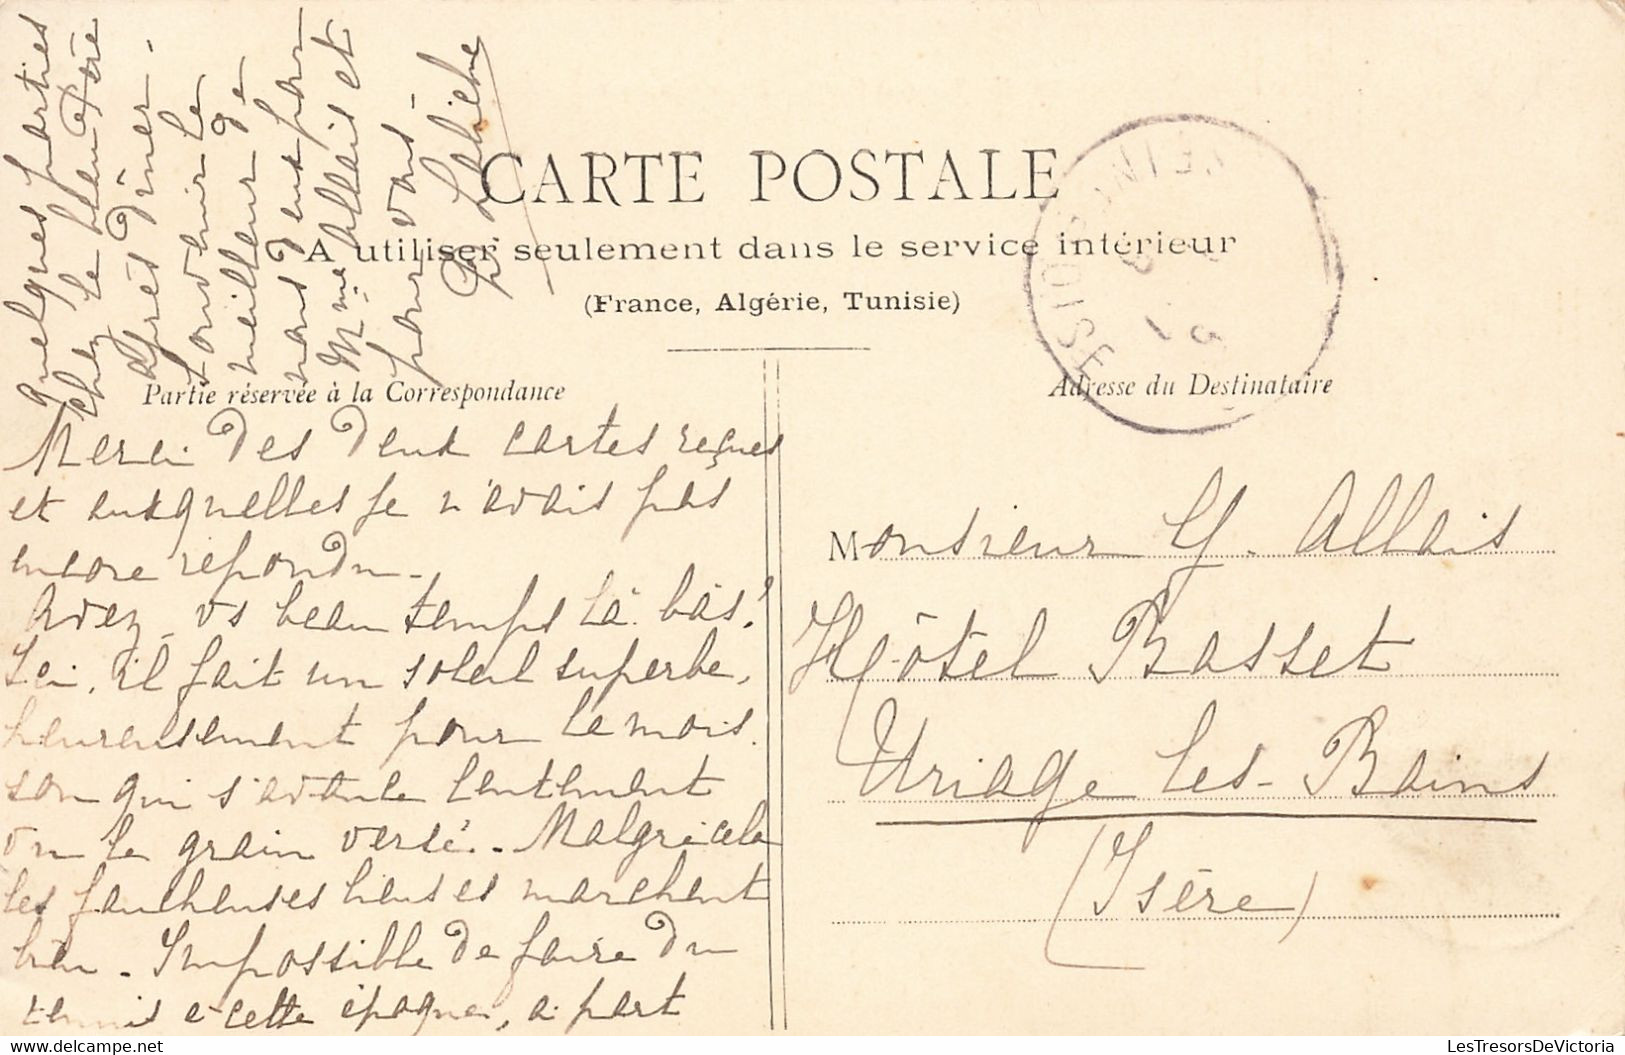 CARTE POSTALE
A utiliser seulement dans le service intérieur
(France, Algérie, Tunisie)
Partie réservée à la Correspondance
Merci des deux cartes reçues
et auxquelles je n'avais pas
encore repondu.
Avez-vs beau temps là-bas?
Ici, il fait un soleil superbe,
heureusement pour la mois
son qui s'avance lentement
vu le grain versé. Malgré cela
les faucheuses lieuses marchent
bien. Impossible de faire du
tennis à cette époque, à part
quelques parties
chez le beau Père
après dîner.
Souvenir le
meilleur de
nous deux pour
Mme Allais et
pour vous
Labiche
Adresse du Destinataire
Monsieur Y. Allais
Hôtel Basset
Uriage les-Bains
(Isère)
OISE
LesTresorsDeVictoria
www.delcampe.net